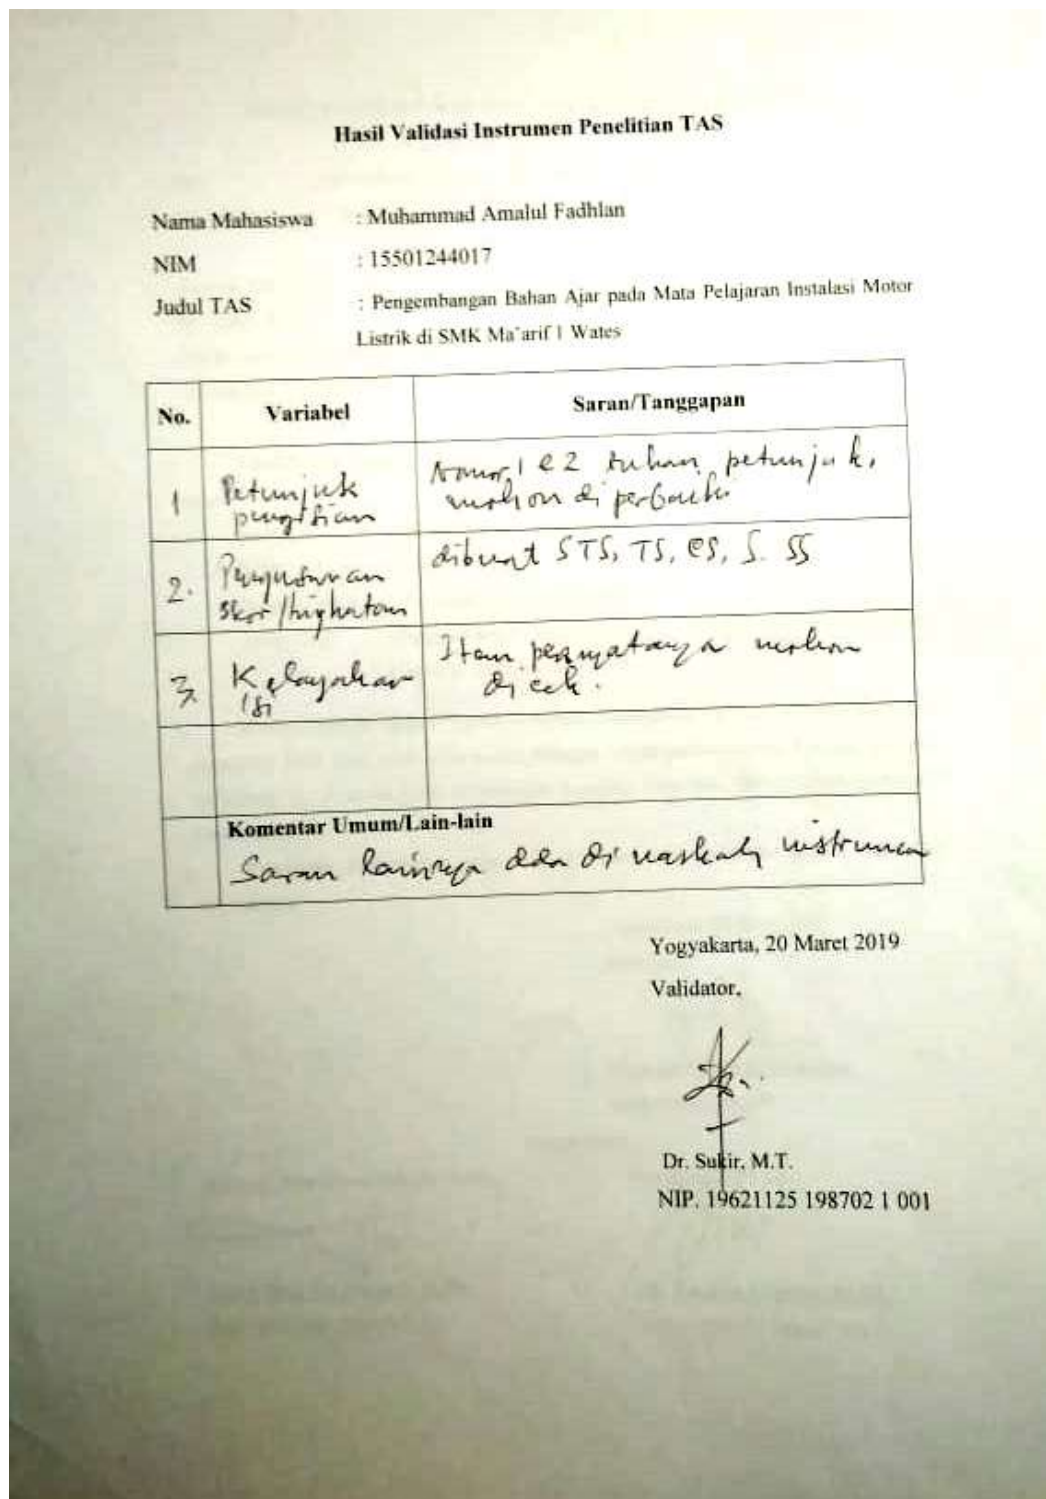 Hasil Validasi Instrumen Penelitian TAS
Nama Mahasiswa : Muhammad Amalul Fadhlan
NIM : 15501244017
Judul TAS : Pengembangan Bahan Ajar pada Mata Pelajaran Instalasi Motor
Listrik di SMK Ma'arif 1 Wates
No. Variabel Saran/Tanggapan
1 Petunjuk
pengisian
Nomor 1 & 2 petunjuk,
mohon diperbaiki
2. Pengukuran
skor/tingkatan
dibuat STS, TS, CS, S. SS
3. Kelayakan
isi
Item pernyatannya mohon
di cek.
Komentar Umum/Lain-lain
Saran lainnya ada di naskah instrumen
Yogyakarta, 20 Maret 2019
Validator,
Dr. Sukir, M.T.
NIP. 19621125 198702 1 001